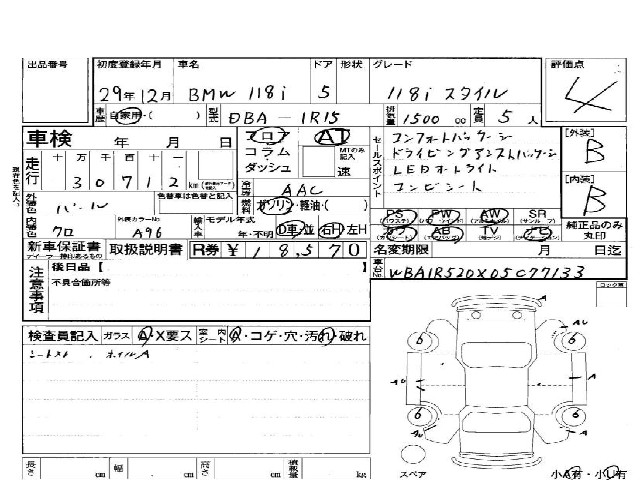 出品番号 初度登録年月 車名 ドア 形状 グレード 評価点
29年12月 BMW 118i 5 118i スタイル 4
車歴 自家用・( ) 型式 DBA-1R15 排気量 1500 cc 定員 5 人
車検 年 月 日 フロア AT セールスポイント コンフォートパッケージ [外装]
走行 十 万 千 百 十 一 コラム MTのみ記入 ドライビングアシストパッケージ B
30712 km ダッシュ 速 LEDオートライト [内装]
冷房 AAC コンビシート B
外装色 パール 色替車は色番と記入 燃料 ガソリン・軽油・( ) PS PW AW SR 純正品のみ丸印
内装色 クロ 外装カラーNo A96 輸入車 モデル年式 年・不明 D車・並 右H・左H カワ AB TV ナビ
新車保証書 取扱説明書 R券 ¥18,570 名変期限 月 日迄
注意事項 後日品【 】 車台No WBA1R520X05C77133
不具合箇所等
検査員記入 ガラス A・X要ス 室内シート キ・コゲ・穴・汚れ・破れ
シートスレ、ホイルA
長さ cm 幅 cm 高さ cm 積載量 kg
6 6
6 6
スペア 小A有・小U有